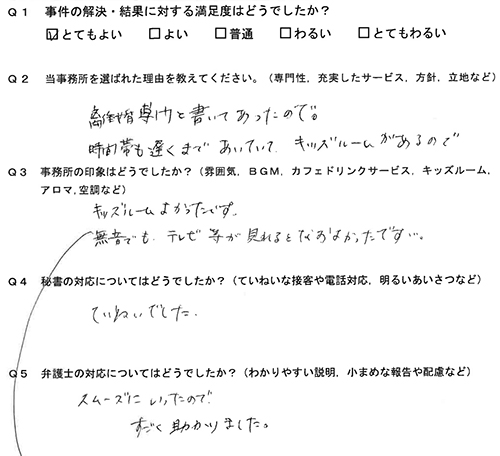 Q1 事件の解決・結果に対する満足度はどうでしたか？
☑とてもよい □よい □普通 □わるい □とてもわるい
Q2 当事務所を選ばれた理由を教えてください。（専門性，充実したサービス，方針，立地など）
離婚専門と書いてあったので。
時間帯も遅くまであいていて、キッズルームがあるので
Q3 事務所の印象はどうでしたか？（雰囲気，BGM，カフェドリンクサービス，キッズルーム，
アロマ，空調など）
キッズルームよかったです。
無音でも、テレビ等が見れるとなおよかったです…。
Q4 秘書の対応についてはどうでしたか？（ていねいな接客や電話対応，明るいあいさつなど）
ていねいでした。
Q5 弁護士の対応についてはどうでしたか？（わかりやすい説明，小まめな報告や配慮など）
スムーズにいったので
すごく助かりました。